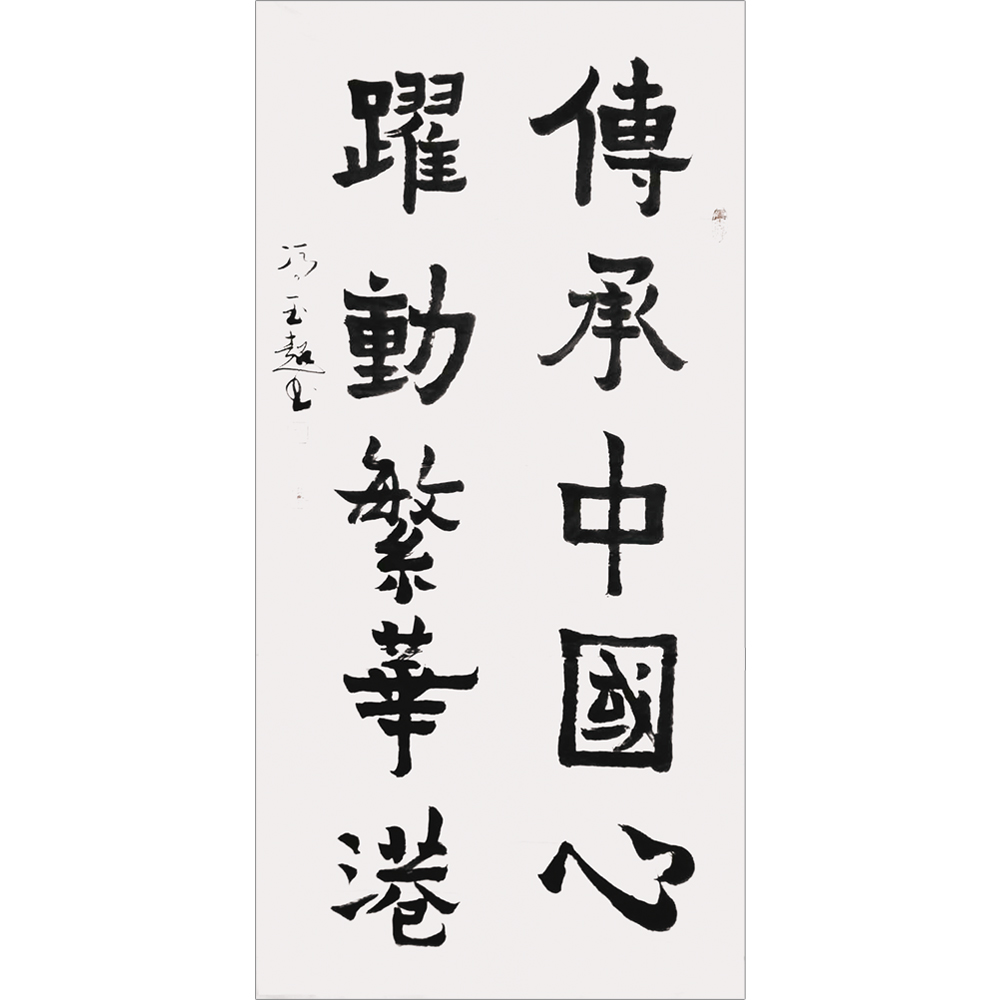 傳承中國心
躍動繁華港
馮玉超書